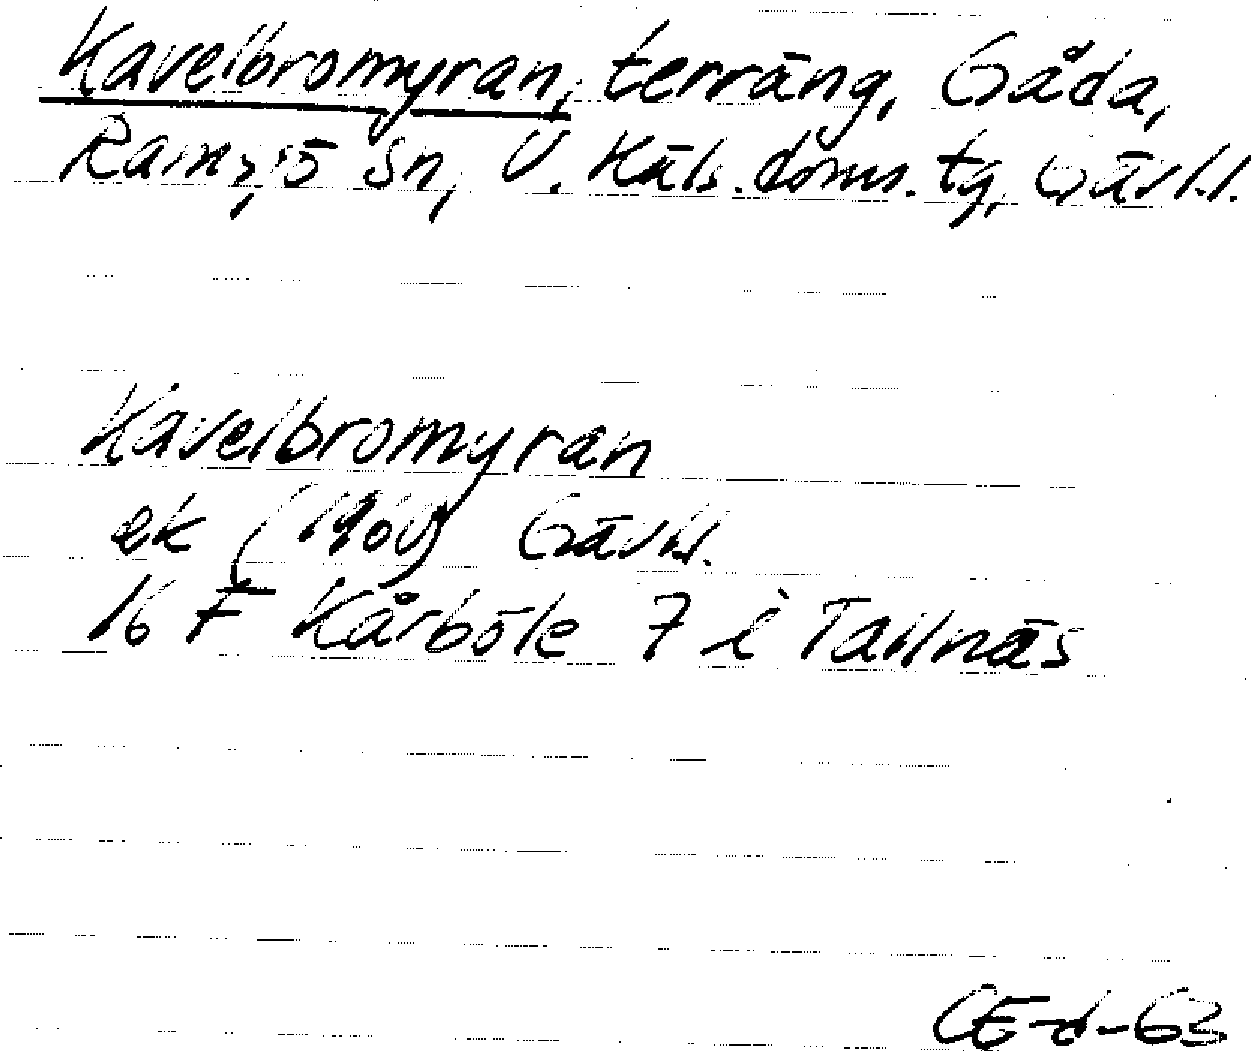 Kavelbromyran, terräng, Gåda,
Ramsjö sn, V. Häls. doms. tg, Gävl.l.
Kavelbromyran
ek (1960) Gävl.l.
16 F Kårböle 7 i Tallnäs
CE-d-63